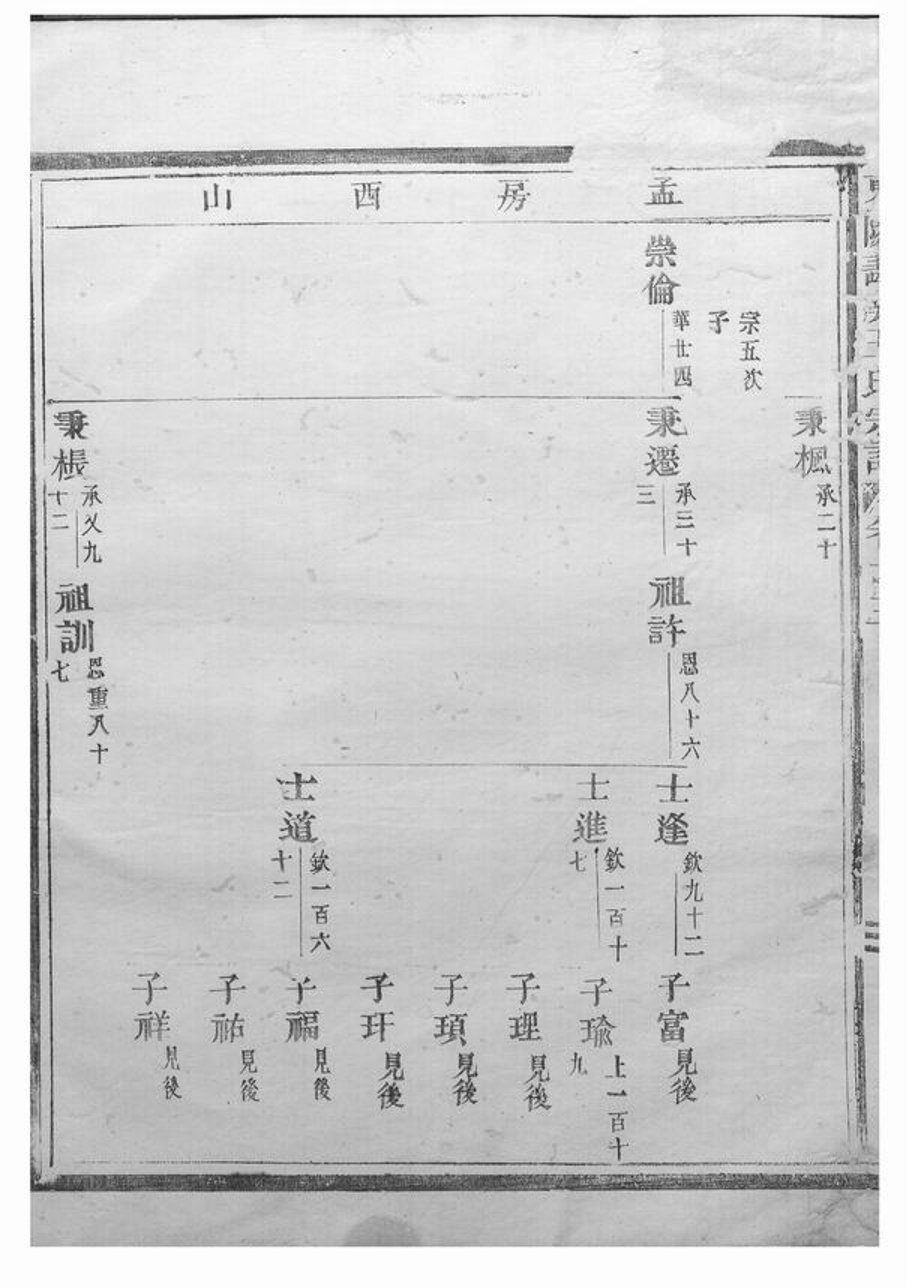 孟房西山
崇倫
宗五次
子
華廿四
秉楓
承二十
秉遷
承三十
三
秉棖
承乂九
十二
祖許
恩八十六
祖訓
恩重八十
七
士逢
欽九十二
士進
欽一百十
七
士道
欽一百六
十二
子富
見後
子瑜
上一百十
九
子理
見後
子頊
見後
子玕
見後
子福
見後
子祐
見後
子祥
見後